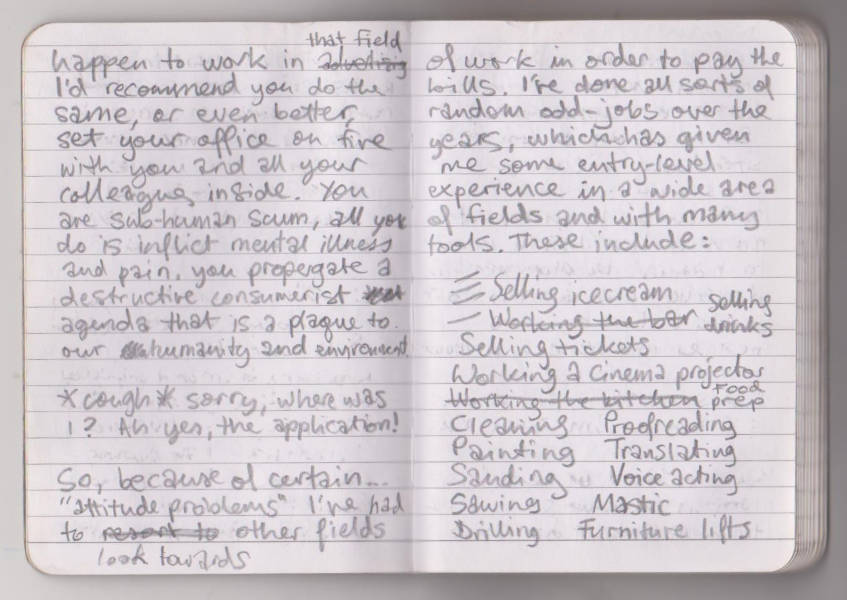 that field
happen to work in advertising
I'd recommend you do the
same, or even better,
set your office on fire
with you and all your
colleagues inside. You
are sub-human scum, all you
do is inflict mental illness
and pain. you propergate a
destructive consumerist
agenda that is a plague to
our humanity and environment.
*cough* sorry, where was
I? Ah yes, the application!
So, because of certain...
"attitude problems" I've had
to resort to other fields
look towards
of work in order to pay the
bills. I've done all sorts of
random odd-jobs over the
years, which has given
me some entry-level
experience in a wide area
of fields and with many
tools. These include:
Selling icecream
Working the bar selling drinks
Selling tickets
Working a cinema projector
Working the kitchen food prep
Cleaning Proofreading
Painting Translating
Sanding Voice acting
Sawing Mastic
Drilling Furniture lifts